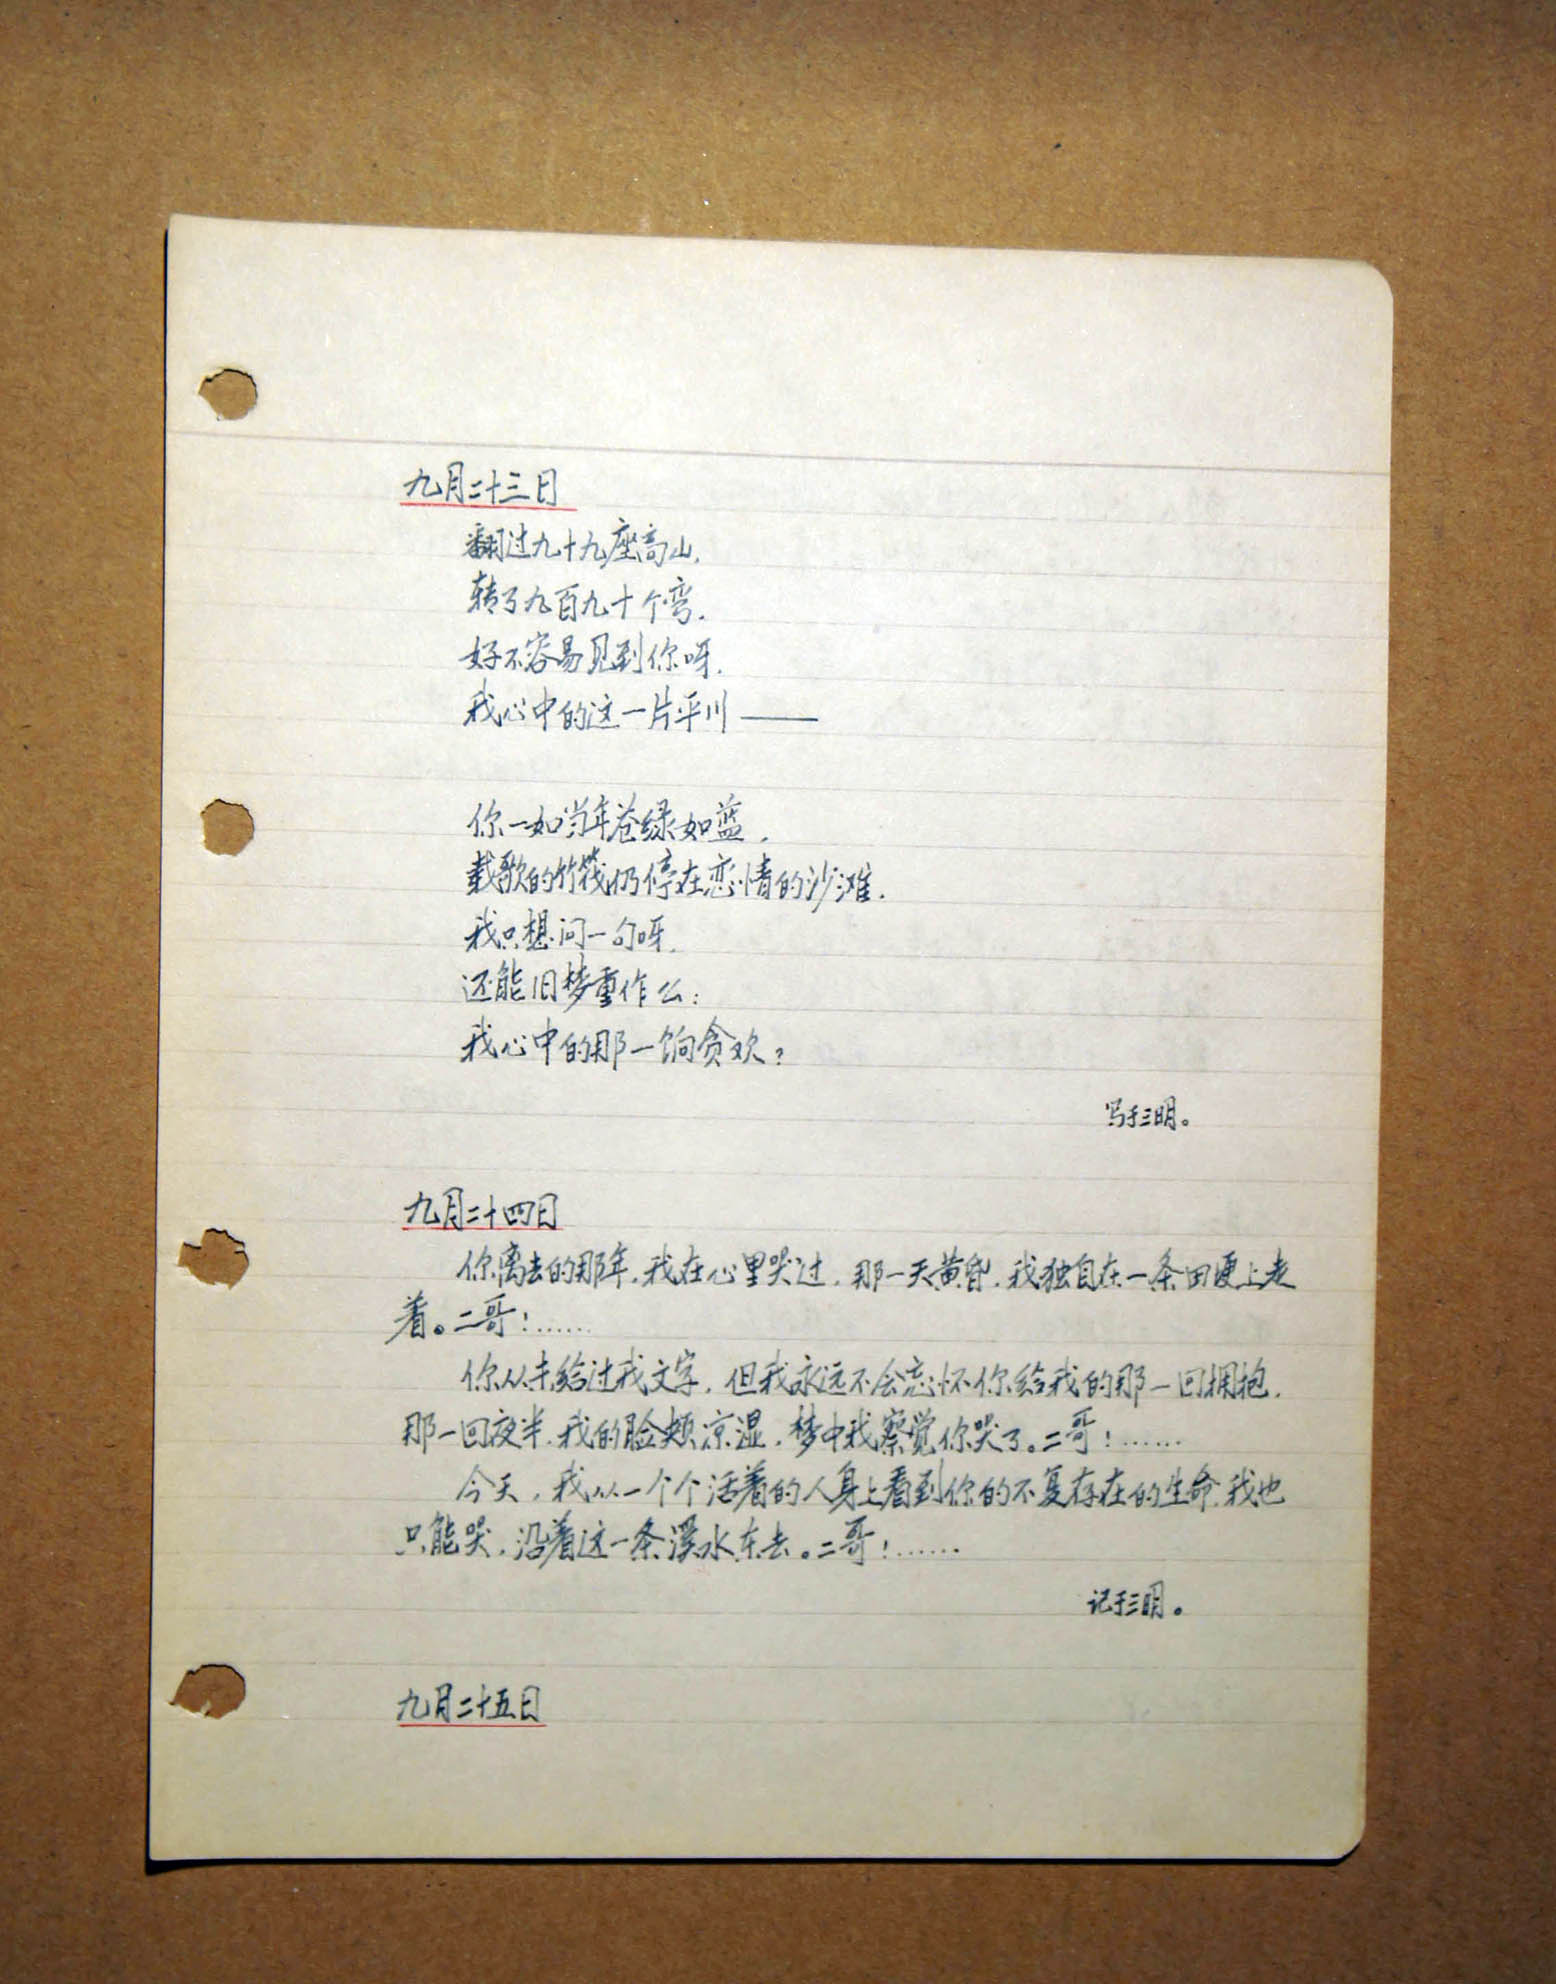 九月二十三日
翻过九十九座高山,
转了九百九十个弯.
好不容易见到你呀.
我心中的这一片平川——
你一如当年苍绿如蓝,
载歌的竹筏仍停在恋情的沙滩.
我只想问一句呀,
还能旧梦重作么:
我心中的那一饷贪欢?
写于三明。
九月二十四日
你离去的那年,我在心里哭过,那一天黄昏,我独自在一条田埂上走
着。二哥!……
你从未给过我文字,但我永远不会忘怀你给我的那一回拥抱,
那一回夜半,我的脸颊凉湿,梦中我察觉你哭了。二哥!……
今天,我从一个个活着的人身上看到你的不复存在的生命,我也
只能哭,沿着这一条溪水东去。二哥!……
记于三明。
九月二十五日